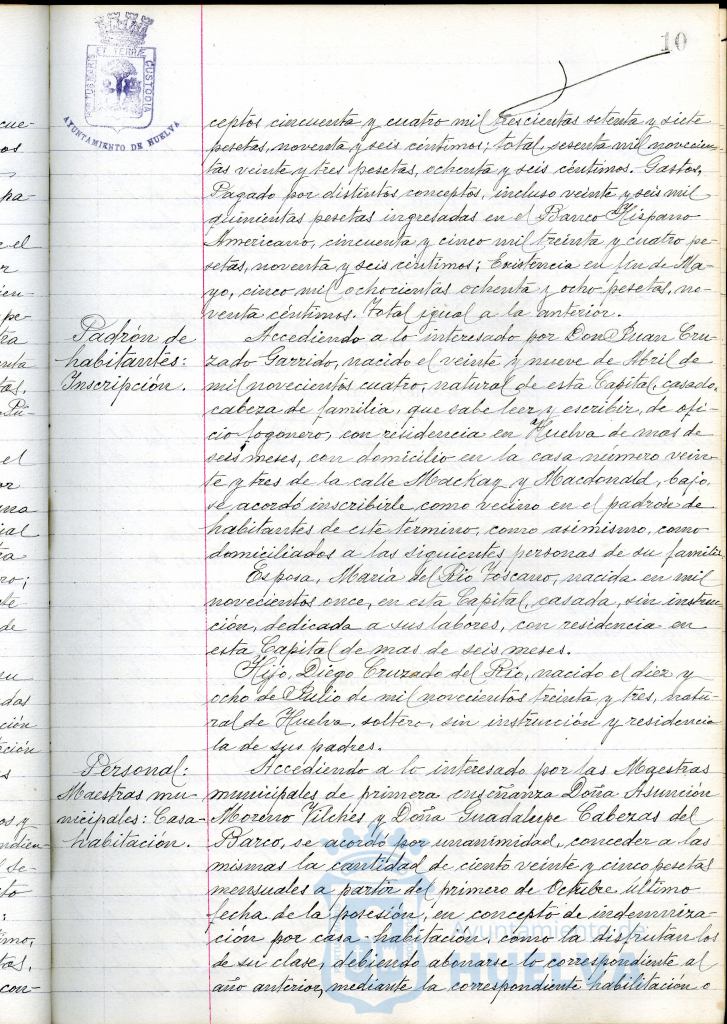 10
ET TERRÆ
CUSTODIA
AYUNTAMIENTO DE HUELVA
ceptos cincuenta y cuatro mil trescientas setenta y siete
pesetas, noventa y seis céntimos; total, sesenta mil novecien-
tas veinte y tres pesetas, ochenta y seis céntimos. Gastos,
Pagado por distintos conceptos, incluso veinte y seis mil
quinientas pesetas ingresadas en el Banco Hispano
Americano, cincuenta y cinco mil treinta y cuatro pe-
setas, noventa y seis céntimos; Existencia en fin de Ma-
yo, cinco mil ochocientas ochenta y ocho pesetas, no-
venta céntimos. Total igual a la anterior.
Padrón de
habitantes:
Inscripción.
Accediendo a lo interesado por Don Juan Cru-
zado Garrido, nacido el veinte y nueve de Abril de
mil novecientos cuatro, natural de esta Capital, casado,
cabeza de familia, que sabe leer y escribir, de ofi-
cio fogonero, con residencia en Huelva de mas de
seis meses, con domicilio en la casa número vein-
te y tres de la calle Mackay y Macdonald, bajo,
se acordó inscribirle como vecino en el padrón de
habitantes de este término, como asimismo, como
domiciliados a las siguientes personas de su familia
Esposa, María del Rio Toscano, nacida en mil
novecientos once, en esta Capital, casada, sin instruc-
ción, dedicada a sus labores, con residencia en
esta Capital de mas de seis meses.
Hijo, Diego Cruzado del Rio, nacido el diez y
ocho de Julio de mil novecientos treinta y tres, natu-
ral de Huelva, soltero, sin instrucción y residencia
la de sus padres.
Personal:
Maestras mu-
nicipales: Casa-
habitación.
Accediendo a lo interesado por las Maestras
municipales de primera enseñanza Doña Asunción
Moreno Vilches y Doña Guadalupe Cabezas del
Barco, se acordó por unanimidad, conceder a las
mismas la cantidad de ciento veinte y cinco pesetas
mensuales a partir del primero de Octubre último
fecha de la posesión, en concepto de indemniza-
ción por casa-habitación, como la disfrutan los
de su clase, debiendo abonarse lo correspondiente al
año anterior, mediante la correspondiente habilitación o
Ayuntamiento de
HUELVA